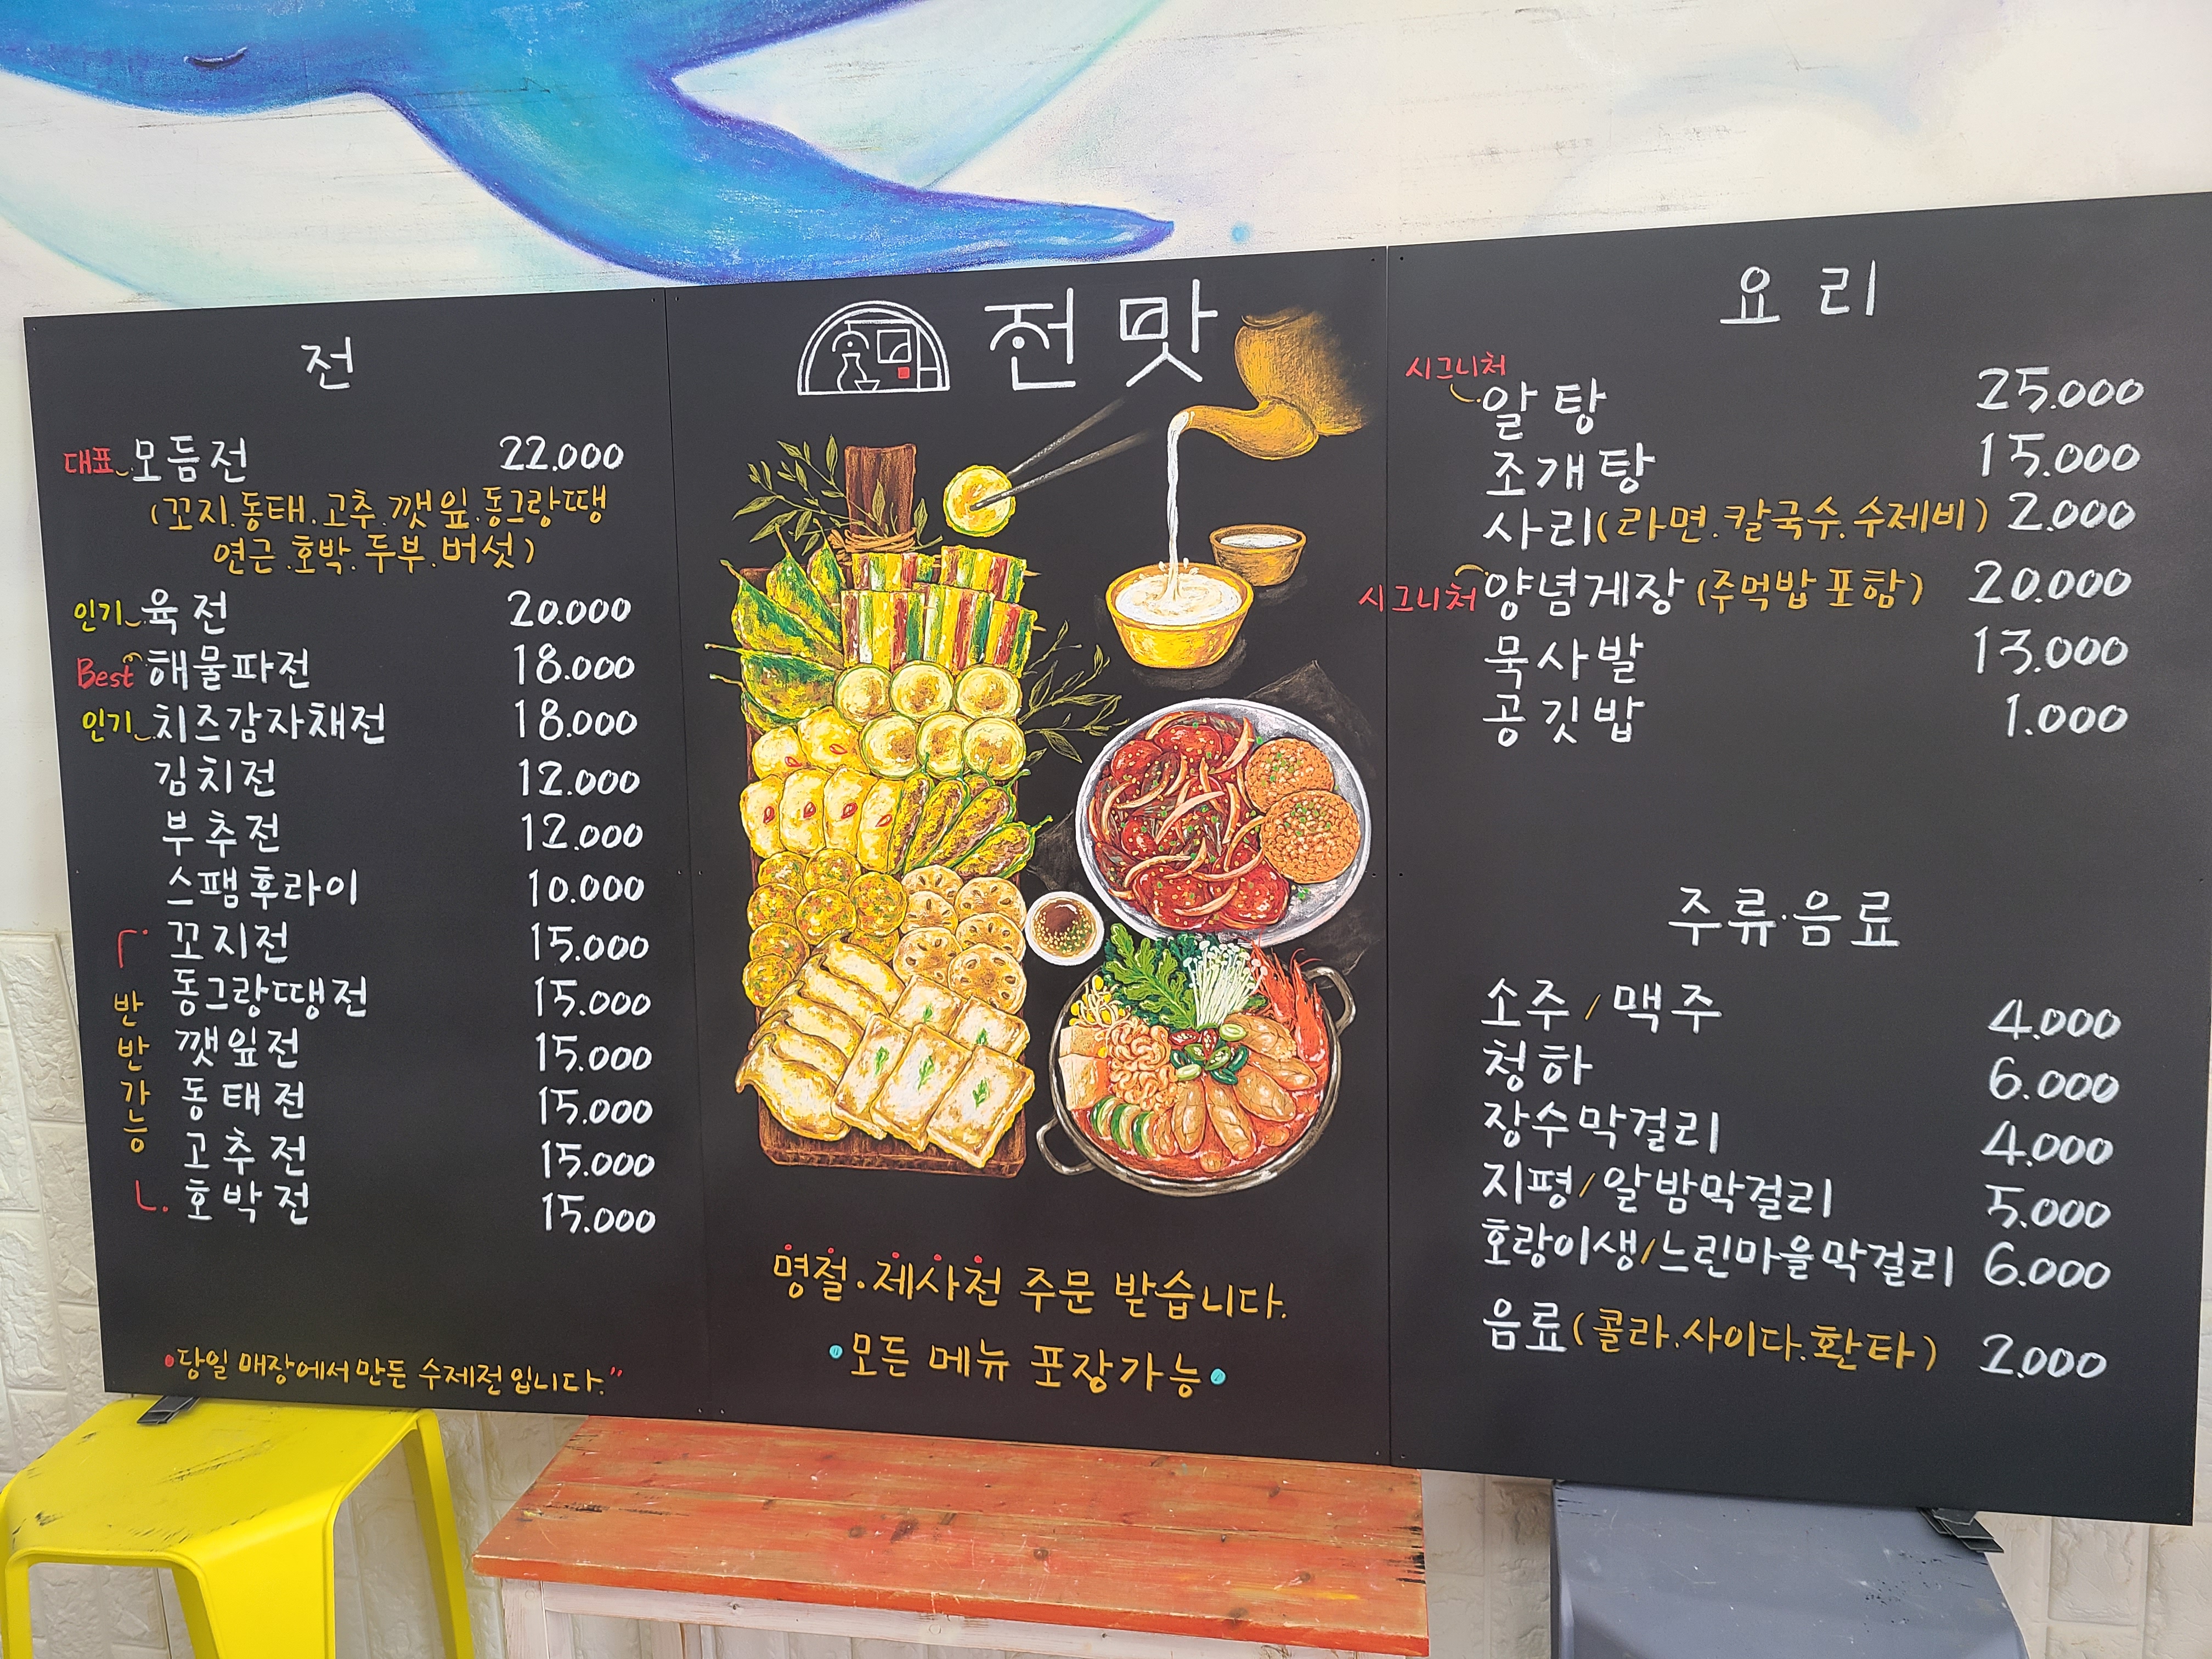 전
대표 모듬전 22.000
(꼬지.동태.고추.깻잎.동그랑땡
연근.호박.두부.버섯)
인기 육전 20.000
Best 해물파전 18.000
인기 치즈감자채전 18.000
김치전 12.000
부추전 12.000
스팸후라이 10.000
반반가능
꼬지전 15.000
동그랑땡전 15.000
깻잎전 15.000
동태전 15.000
고추전 15.000
호박전 15.000
당일 매장에서 만든 수제전입니다."
전맛
명절.제사전 주문 받습니다.
•모든 메뉴 포장가능•
요리
시그니처 알탕 25.000
조개탕 15.000
사리(라면.칼국수.수제비) 2.000
시그니처 양념게장(주먹밥 포함) 20.000
묵사발 13.000
공깃밥 1.000
주류·음료
소주/맥주 4.000
청하 6.000
장수막걸리 4.000
지평/알밤막걸리 5.000
호랑이생/느린마을막걸리 6.000
음료(콜라.사이다.환타) 2.000